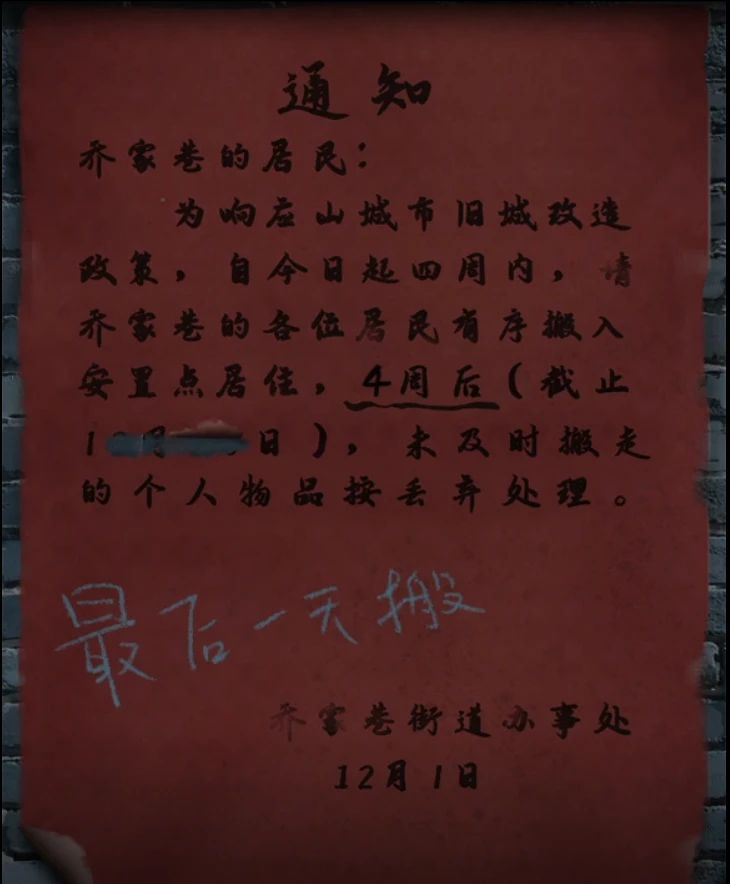 通知
乔家巷的居民：
为响应山城市旧城改造
政策，自今日起四周内，请
乔家巷的各位居民有序搬入
安置点居住，4周后（截止
1 月 日），未及时搬走
的个人物品按丢弃处理。
最后一天搬
乔家巷街道办事处
12月1日